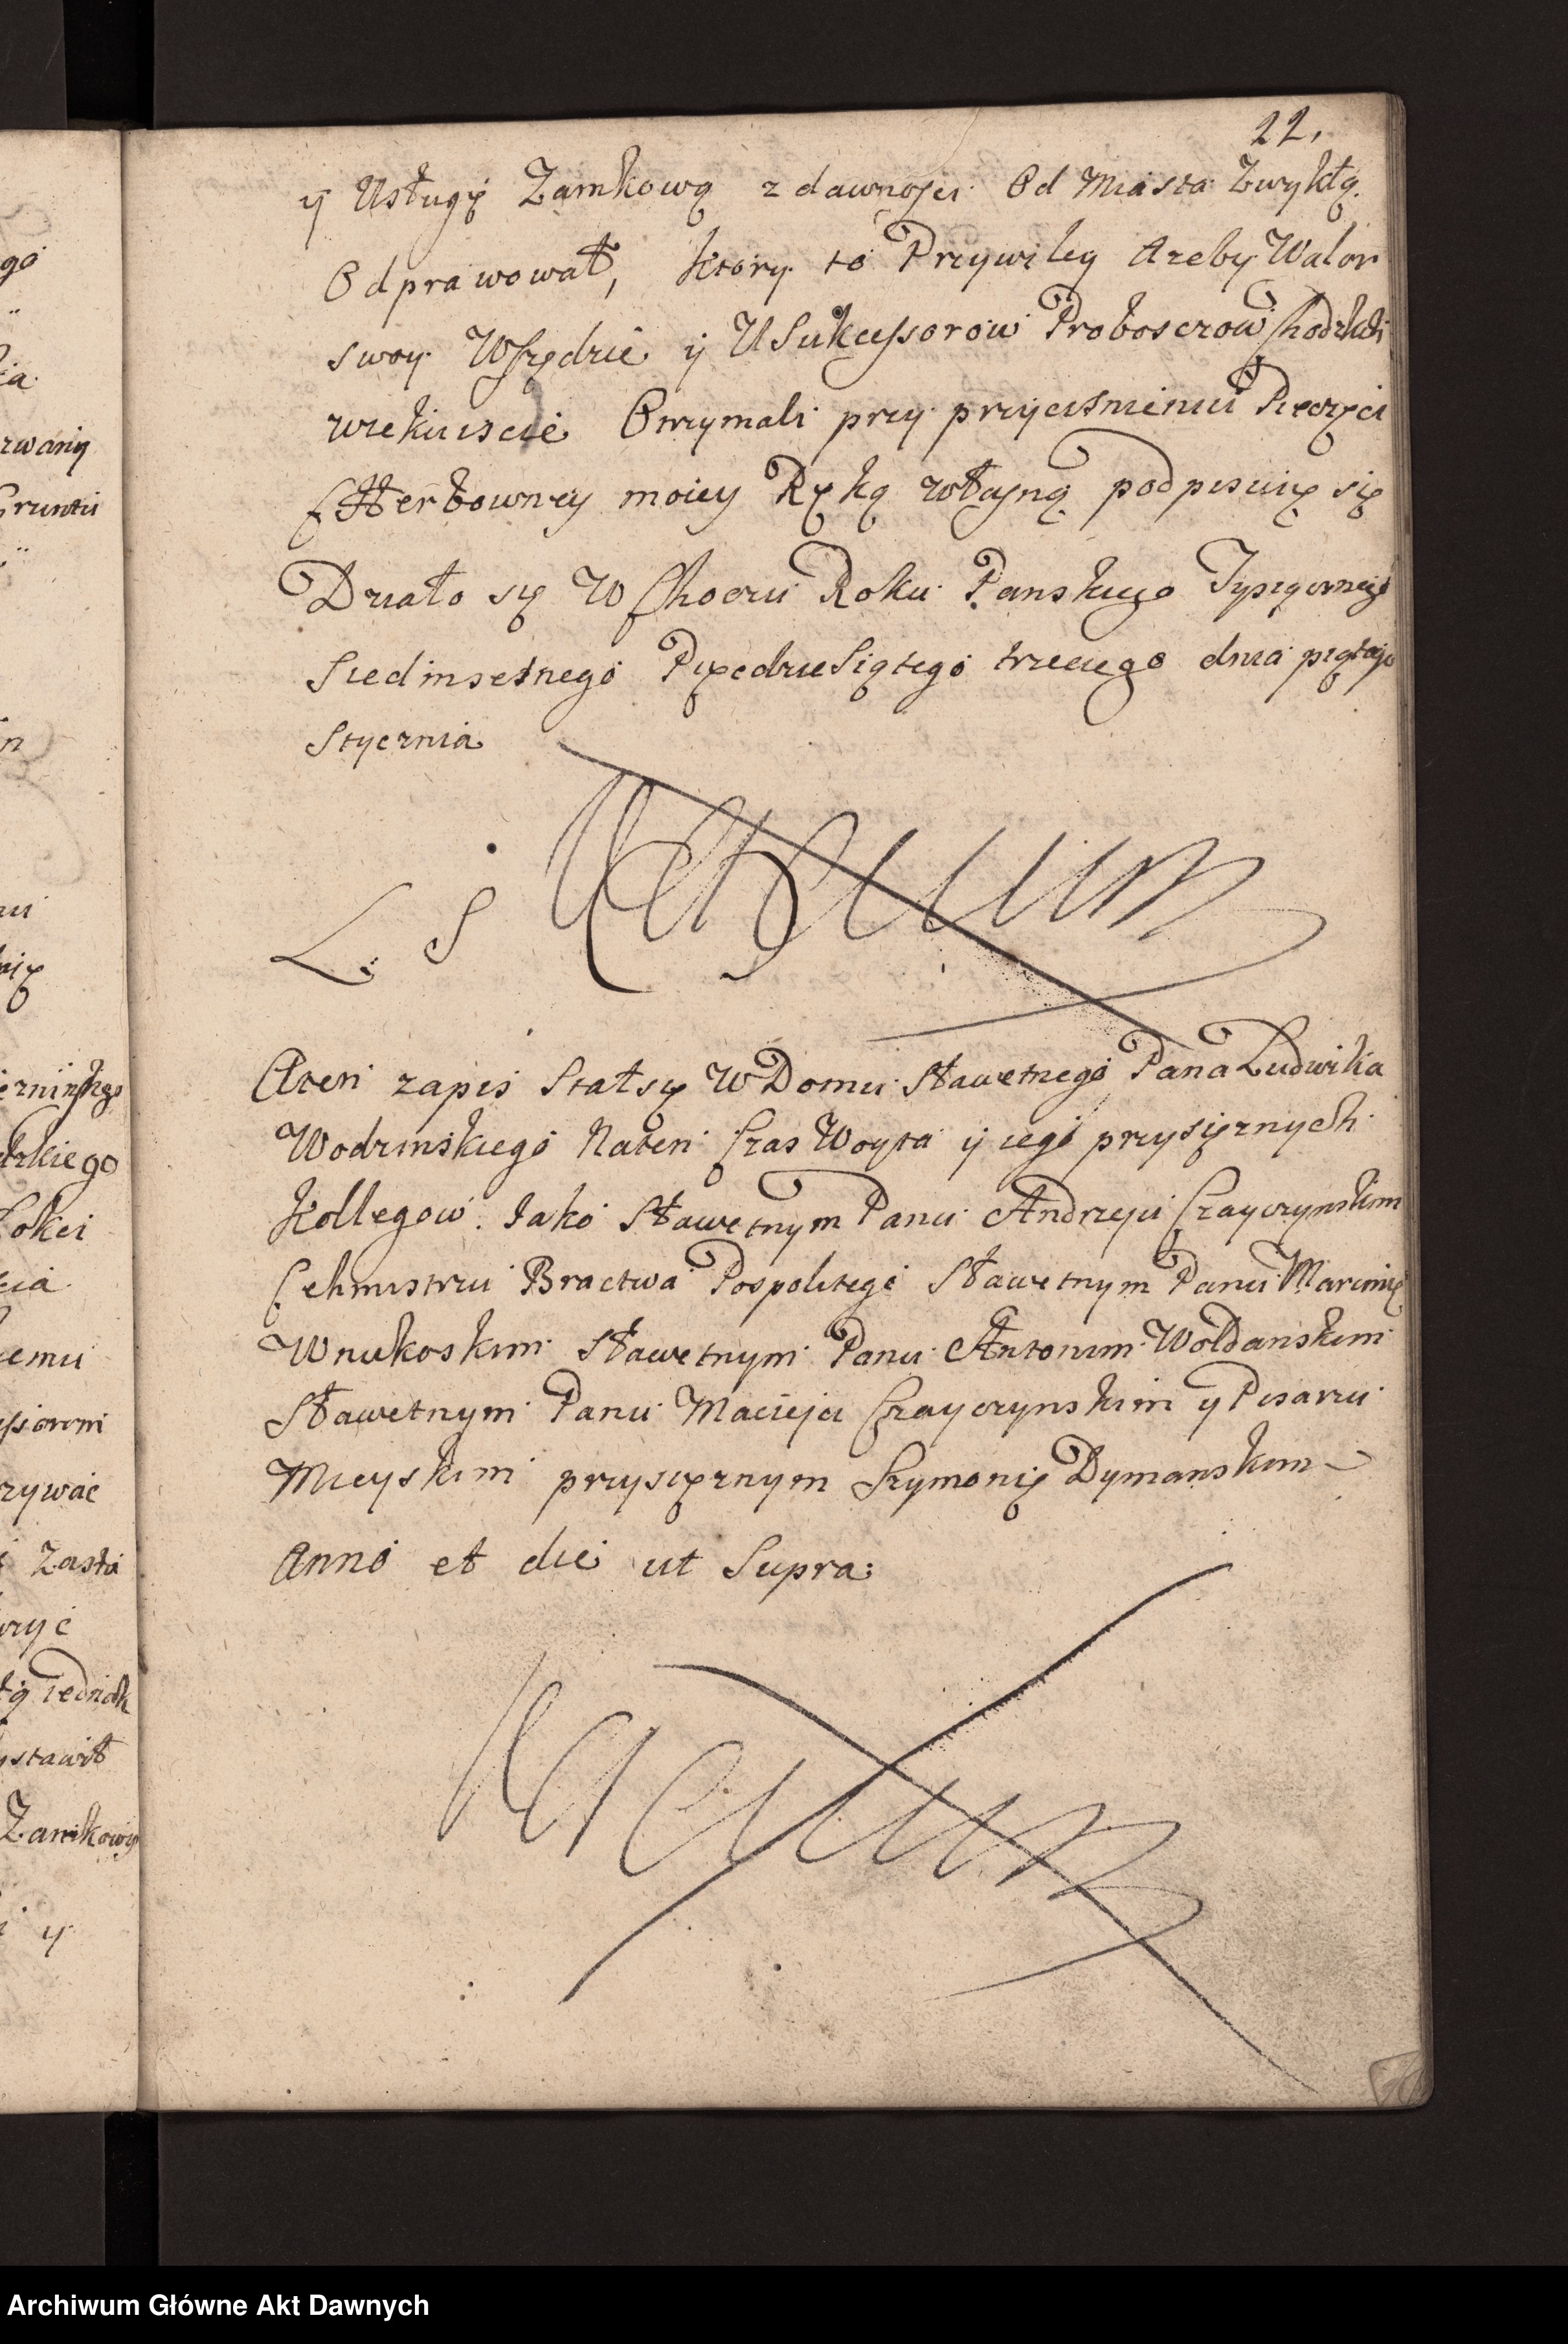 22.
y Usługę Zamkową z dawnosci Od Miasta Zwykłą
Odprawował, ktory to Przywiley Azeby Walor
swoy Wszędzie y U Sukcessorow Proboszczow Chodzkich
wiekuiscie Otrzymali przy przycisnieniu Pieczęci
Herbowney moiey Ręką własną podpisuię się
Działo się W Choczu Roku Panskiego Tysiącznego
Siedmsetnego Pięcdziesiątego trzeciego dnia piątego
Stycznia
L. S
Aten zapis Stał się W Domu Sławetnego Pana Ludwika
Wodzinskiego Naten Czas Woyta y iego przysięznych
Kollegow. Jako Sławetnym Panu Andrzeju Czayczynskim
Cehmistrzu Bractwa Pospolitego Sławetnym Panu Marcinię
Wnukoskim Sławetnym Panu Antonim Woldanskim
Sławetnym Panu Macieju Czayczynskim y Pisarzu
Mieyskim przysięznym Szymonię Dymanskim
Anno et die ut Supra:
go
ia
zwaną
Gruntu
kiego
Zasta
iednak
ystawił
Zamkową
y
Archiwum Główne Akt Dawnych